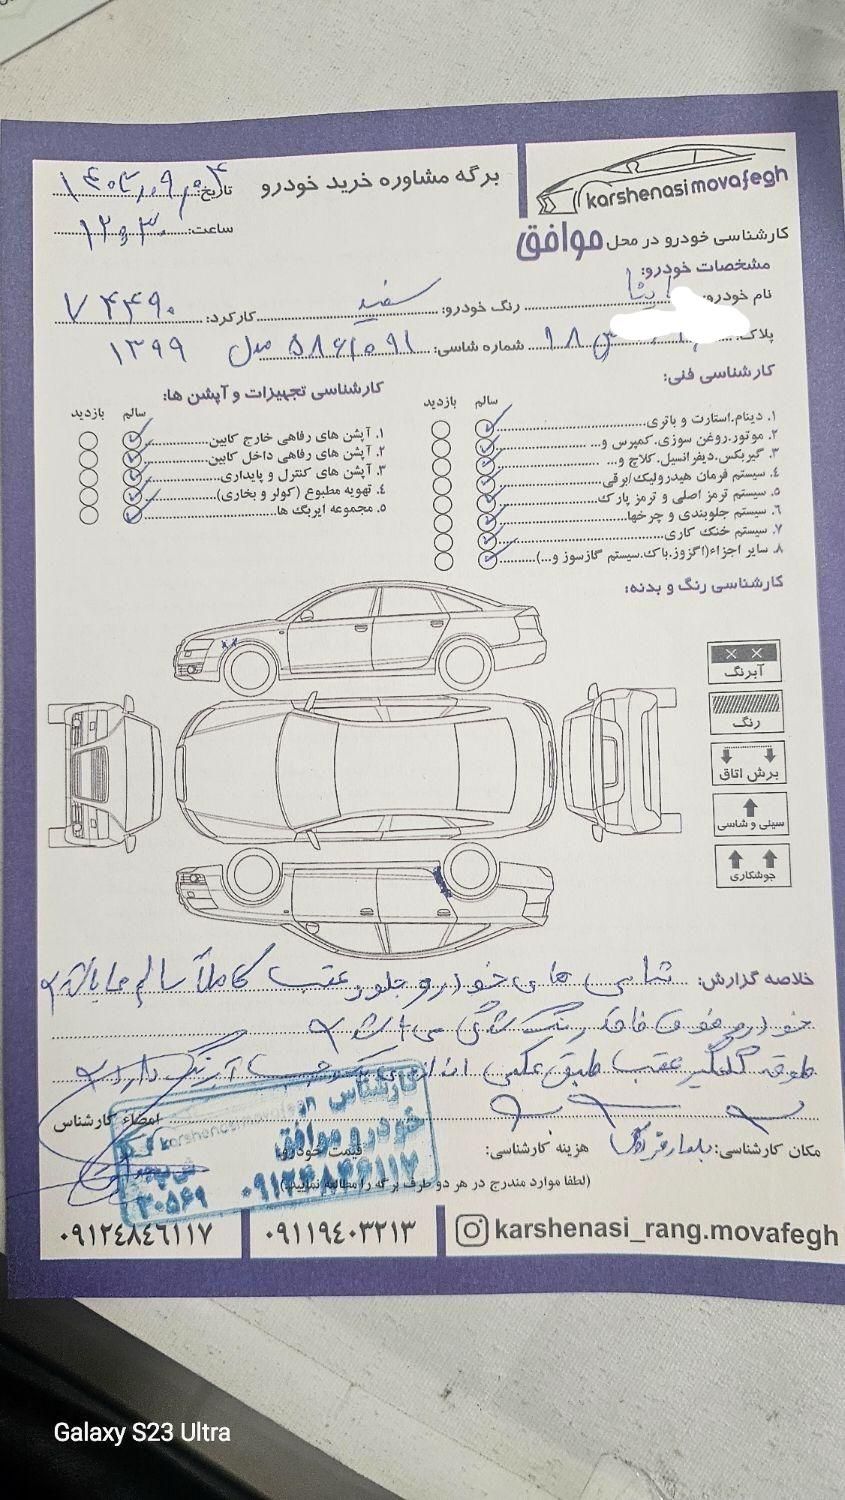 karshenasi movafegh
برگه مشاوره خرید خودرو
تاریخ:
ساعت: ۱۲:۳۰
کارشناسی خودرو در محل موافق
مشخصات خودرو:
نام خودرو: رنگ خودرو: سفید کارکرد: ۷۴۴۹۰
پلاک: شماره شاسی: ۵۸۶۱۰۹۱ مدل ۱۳۹۹
کارشناسی فنی:
سالم بازدید
۱. دینام.استارت و باتری
۲. موتور.روغن سوزی.کمپرس و...
۳. گیربکس.دیفرانسیل.کلاچ و...
۴. سیستم فرمان هیدرولیک/برقی
۵. سیستم ترمز اصلی و ترمز پارک
۶. سیستم جلوبندی و چرخها
۷. سیستم خنک کاری
۸. سایر اجزاء(اگزوز.باک.سیستم گازسوز و...)
کارشناسی تجهیزات و آپشن ها:
سالم بازدید
۱. آپشن های رفاهی خارج کابین
۲. آپشن های رفاهی داخل کابین
۳. آپشن های کنترل و پایداری
۴. تهویه مطبوع (کولر و بخاری)
۵. مجموعه ایربگ ها
کارشناسی رنگ و بدنه:
× ×
آبرنگ
رنگ
برش اتاق
سینی و شاسی
جوشکاری
خلاصه گزارش: شاسی های خودرو جلو و عقب کاملاً سالم
خودرو فوق فاقد رنگ شدگی می باشد
گلگیر عقب طبق عکس آبرنگ دارد
امضاء کارشناس
مکان کارشناسی: هزینه کارشناسی: قیمت خودرو:
(لطفا موارد مندرج در هر دو طرف برگه را مطالعه نمایید)
کارشناس
خودرو موافق
۲۰۵۶۹
karshenasi_rang.movafegh
۰۹۱۱۹٤۰۳۲۱۳
۰۹۱۲٤۸٤۶۱۱۷
Galaxy S23 Ultra